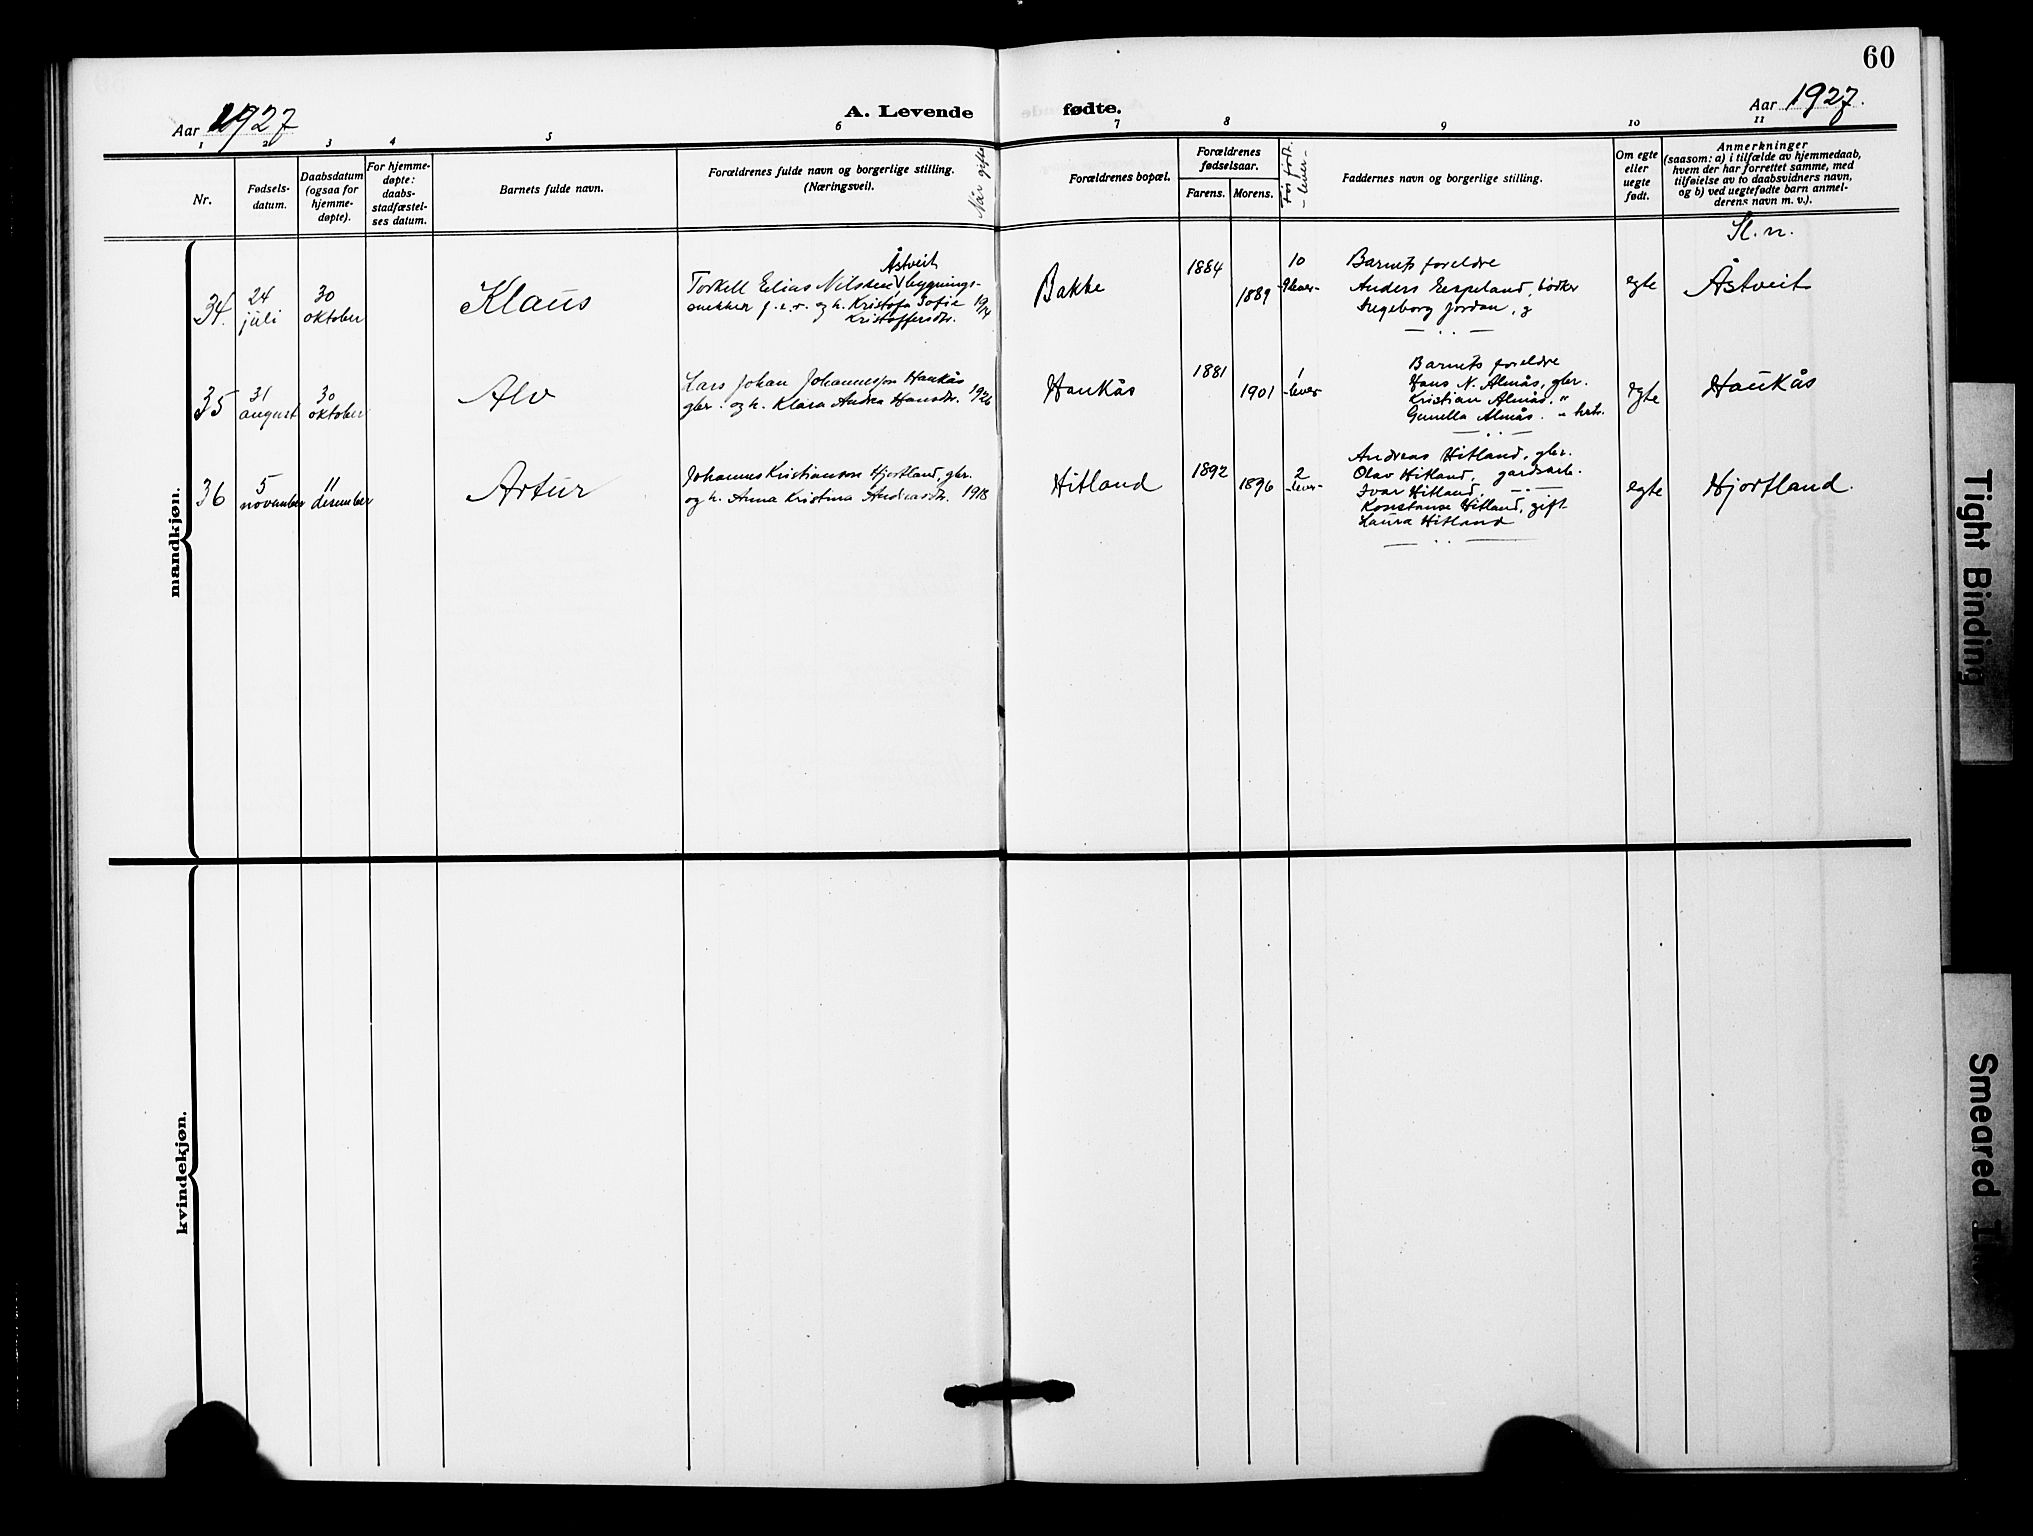 60
Aar 1927
A. Levende
fødte.
Aar 1927.
1 2 3 4 5 6 7 8 9 10 11
Nr.
Fødsels-
datum.
Daabsdatum
(ogsaa for
hjemme-
døpte).
For hjemme-
døpte:
daabs-
stadfæstel-
ses datum.
Barnets fulde navn.
Forældrenes fulde navn og borgerlige stilling.
(Næringsvei).
Når gifte
Forældrenes bopæl.
Forældrenes
fødselsaar.
Farens. Morens.
Før født.
- lever -
Faddernes navn og borgerlige stilling.
Om egte
eller
uegte
født.
Anmerkninger
(saasom: a) i tilfælde av hjemmedaab,
hvem der har forrettet samme, med
tilføielse av to daabsvidners navn,
og b) ved uegtefødte barn anmel-
derens navn m. v.).
Sl. n.
mandkjøn.
34.
24
juli
30
oktober
Klaus
Åstveit
Torkell Elias Nilssen bygnings-
snekker f.e.r. og h. Kristofa Sofie
Kristoffersdtr.
19/14
Bakke
1884
1889
10
-9 lever-
Barnets foreldre
Anders Eespeland, bödker
Ingeborg Jordan, g
egte
Åstveit
35
31
august
30
oktober
Alv
Lars Johan Johannessen Haukås
gbr. og h. Klara Andrea Hansdtr.
1926
Haukås
1881
1901
1
-lever
Barnets foreldre
Hans N. Almås, gbr.
Kristian Almås, "
Gunella Almås.
egte
Haukås
36
5
november
11
desember
Artur
Johannes Kristianson Hjortland, gbr.
og h. Anna Kristina Andreasdtr.
1918
Hitland
1892
1896
2
-lever-
Andreas Hitland, gbr.
Olav Hitland, gardsarb.
Ivar Hitland, - " -
Konstanse Hitland, gift
Laura Hitland
egte
Hjortland.
kvindekjøn.
Tight Binding
Smeared